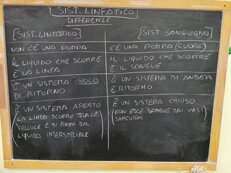 SIST. LINFATICO
DIFFERENZE
SIST. LINFATICO
SIST. SANGUIGNO
NON C'È UNA POMPA
C'È UNA POMPA (CUORE)
IL LIQUIDO CHE SCORRE
È LA LINFA
IL LIQUIDO CHE SCORRE
È IL SANGUE
È UN SISTEMA SOLO
DI RITORNO
È UN SISTEMA DI ANDATA
E RITORNO
È UN SISTEMA APERTO
LA LINFA SCORRE TRA LE
CELLULE E SI FORMA DAL
LIQUIDO INTERSTIZIALE
È UN SISTEMA CHIUSO
(NON ESCE SANGUE DAI VASI
SANGUIGNI)